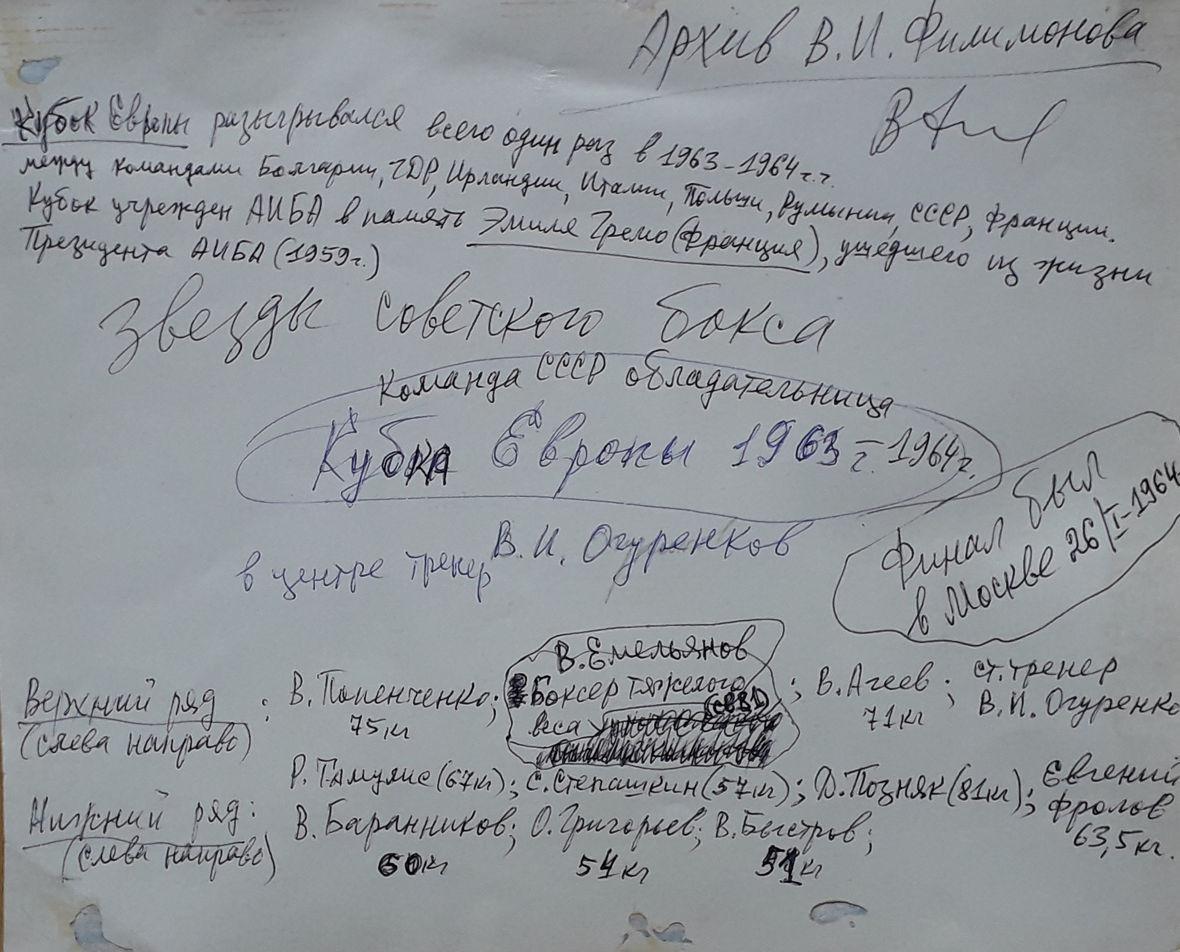 Архив В.И. Филимонова
Кубок Европы разыгрывался всего один раз в 1963-1964г.г.
между командами Болгарии, ГДР, Ирландии, Италии, Польши, Румынии, СССР, Франции.
Кубок учрежден АИБА в память Эмиля Гремо (Франция), ушедшего из жизни
Президента АИБА (1959г.)
Звезды советского бокса
Команда СССР обладательница
Кубка Европы 1963г.-1964г.
Финал был
в Москве 26/I-1964
в центре тренер В.И. Огуренков
Верхний ряд : В. Попенченко; В. Емельянов ; В. Агеев ; ст. тренер
(слева направо) 75кг Боксер тяжелого 71кг В.И. Огуренко
веса
Р. Тамулис (67кг); С. Степашкин (57кг); Д. Позняк (81кг); Евгений
Фролов
63,5кг.
Нижний ряд: В. Баранников; О. Григорьев; В. Быстров;
(слева направо) 60кг 54кг 51кг